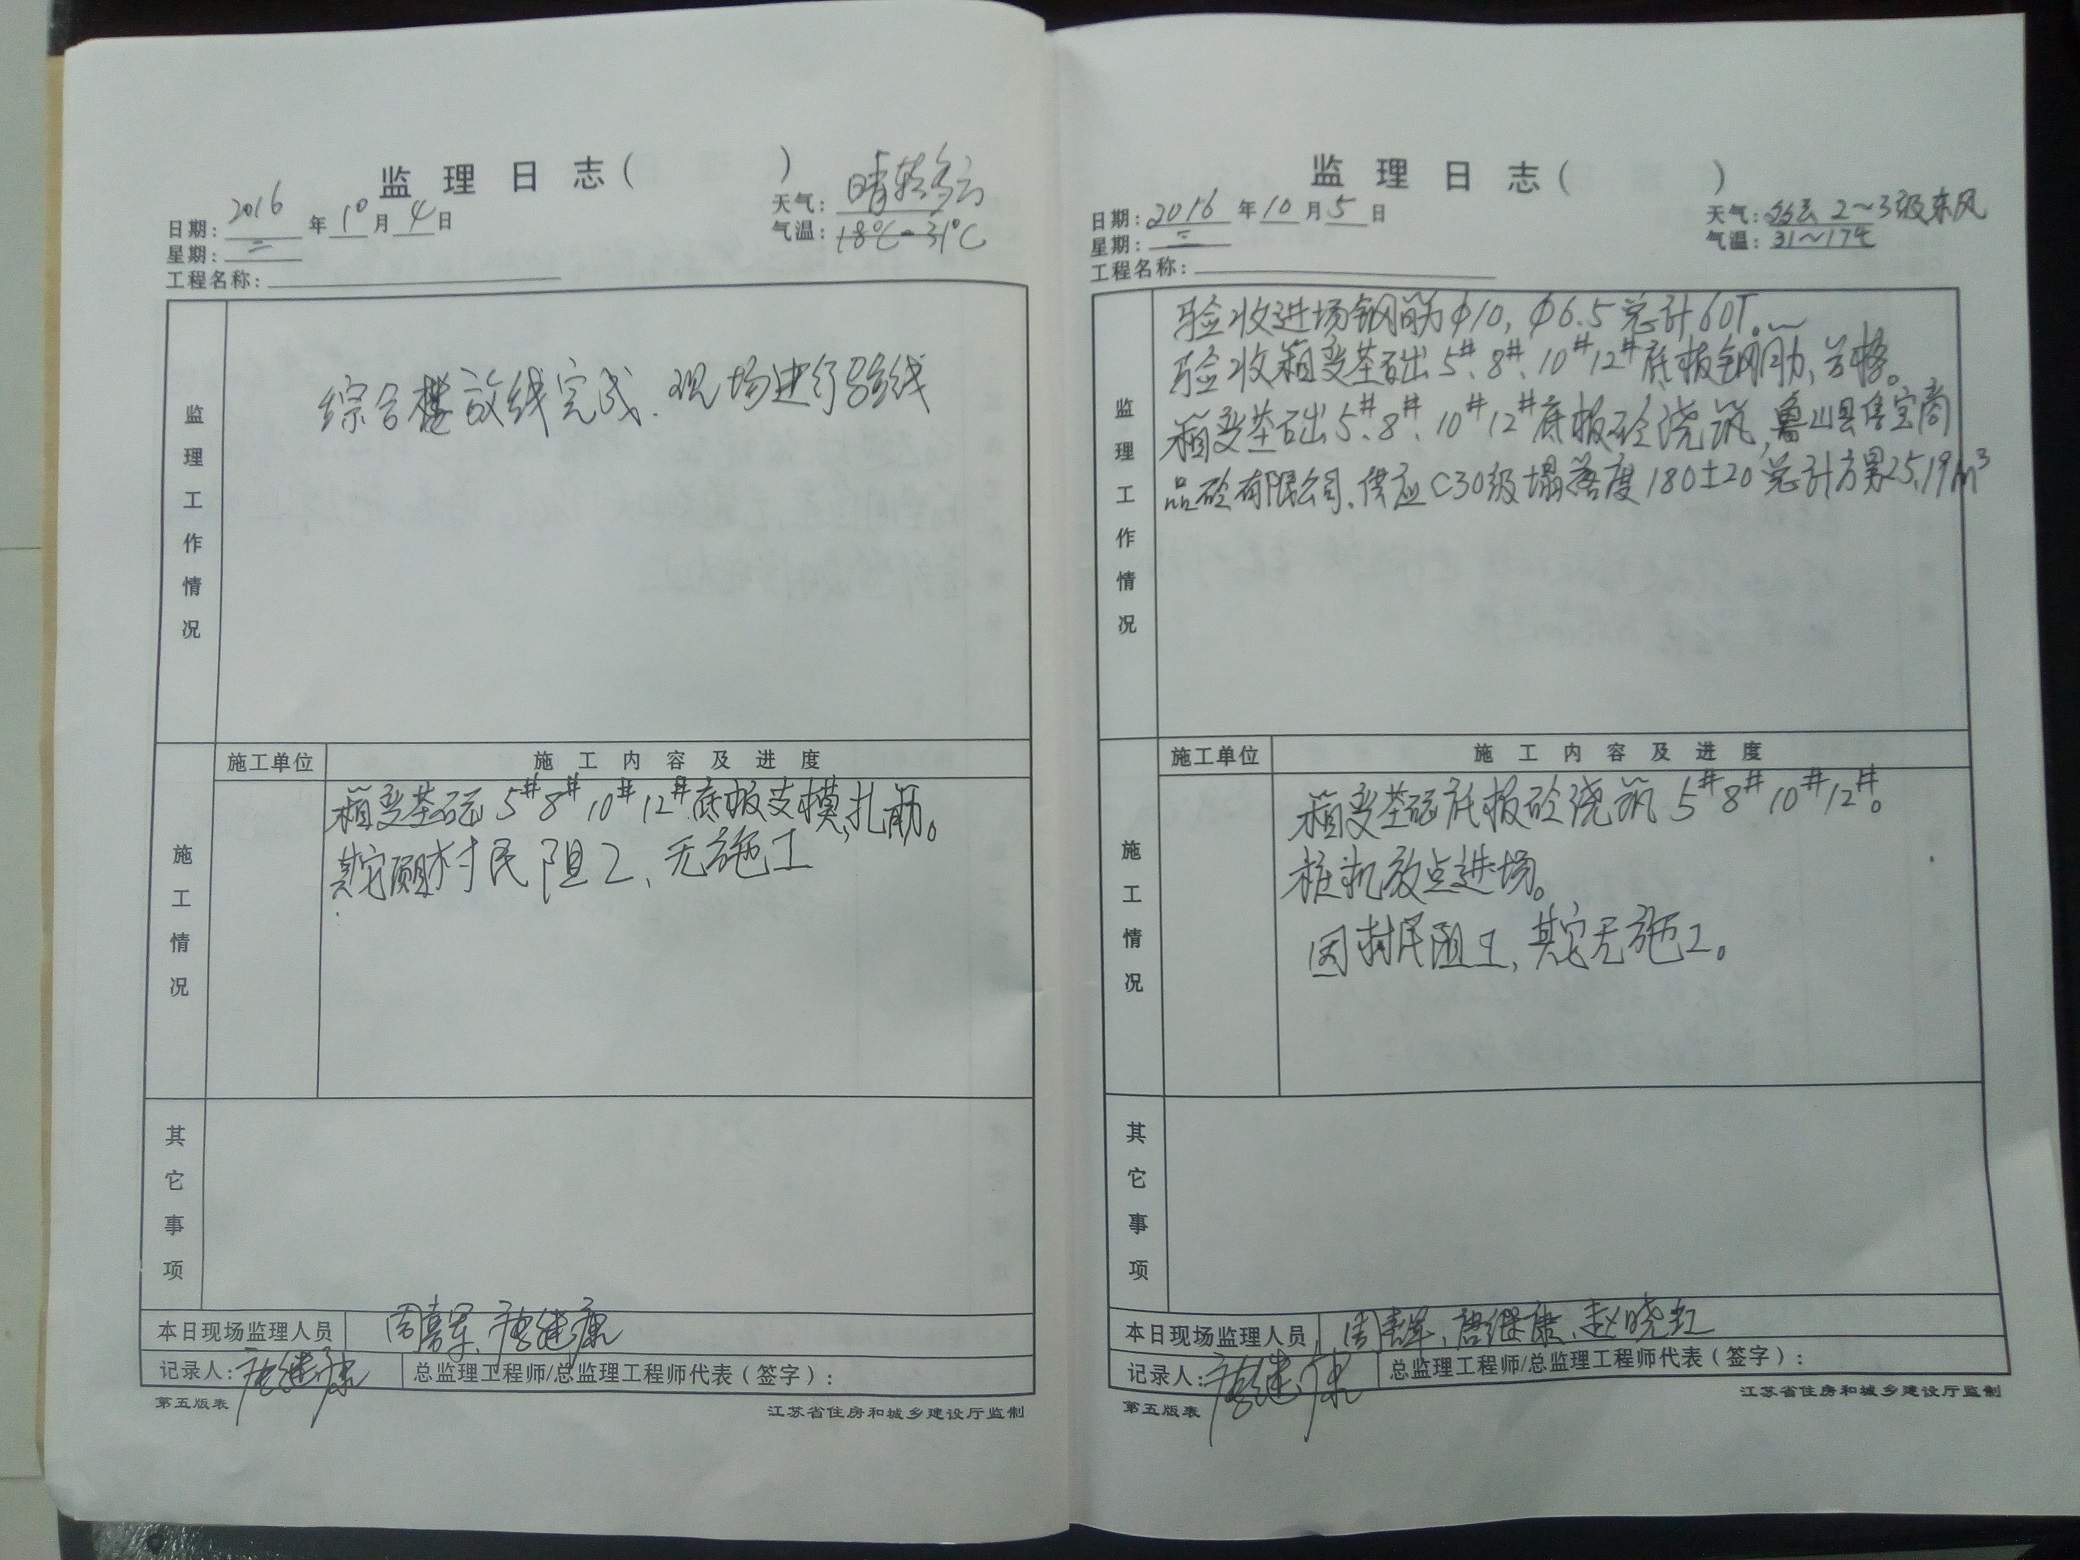 监理日志（　　）
日期：2016年10月4日
天气：晴转多云
星期：二
气温：18℃-31℃
工程名称：
监理工作情况
综合楼放线完成、现场进行验线
施工情况
施工单位 施工内容及进度
箱变基础5#8#10#12#底板支模,扎筋。
其它项目村民阻工、无施工
其它事项
本日现场监理人员 唐继康
记录人：唐继康 总监理工程师/总监理工程师代表（签字）：
第五版表 江苏省住房和城乡建设厅监制
监理日志（　　）
日期：2016年10月5日
天气：多云 2～3级东风
星期：二
气温：31～17℃
工程名称：
监理工作情况
验收进场钢筋为φ10，φ6.5总计60T。
验收箱变基础5#、8#、10#12#底板钢筋，合格。
箱变基础5#、8#、10#12#底板砼浇筑，鲁山县 宝商
品砼有限公司、供应C30级塌落度180±20总计方 25.19m³
施工情况
施工单位 施工内容及进度
箱变基础底板砼浇筑5#8#10#12#。
桩机放点进场。
因村民阻工，其它无施工。
其它事项
本日现场监理人员 唐继康、赵晓红
记录人：唐继康 总监理工程师/总监理工程师代表（签字）：
第五版表 江苏省住房和城乡建设厅监制